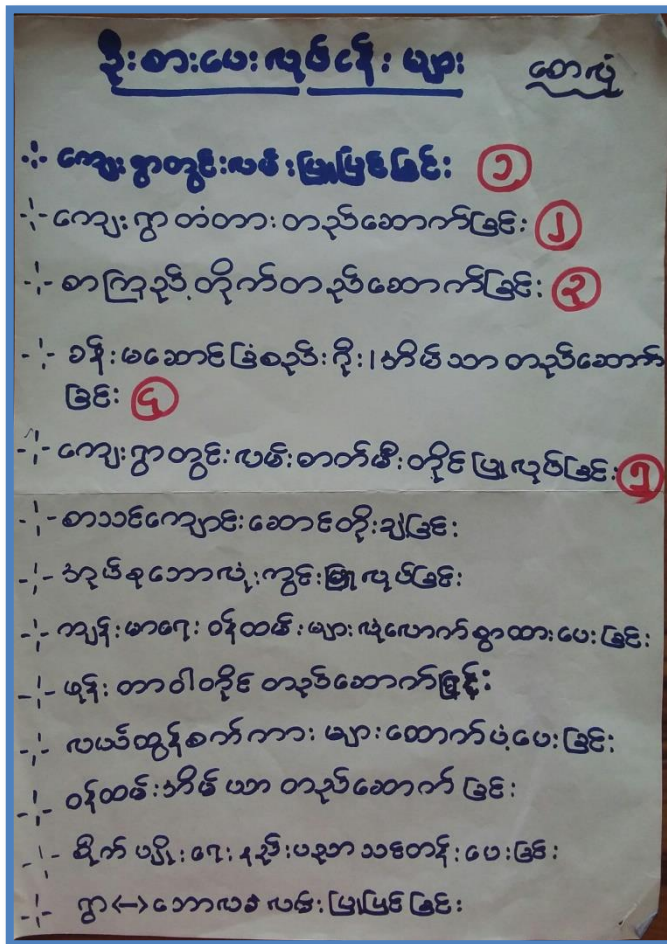 ဦးစားပေးလုပ်ငန်းများ တေလုံ
-:- ကျေးရွာတွင်းလမ်းပြုပြင်ခြင်း ၁
-:- ကျေးရွာတံတားတည်ဆောက်ခြင်း ၂
-:- စာကြည့်တိုက်တည်ဆောက်ခြင်း ၃
-:- ခန်းမဆောင်ခြံစည်းရိုး/အိမ်သာတည်ဆောက်
ခြင်း ၄
-:- ကျေးရွာတွင်းလမ်းဓာတ်မီးတိုင်ပြုလုပ်ခြင်း ၅
-:- စာသင်ကျောင်းဆောင်တိုးချဲ့ခြင်း
-:- ဘောလုံးကွင်းပြုလုပ်ခြင်း
-:- ကျန်းမာရေးဝန်ထမ်းများလုံလောက်စွာထားပေးခြင်း
-:- ဖုန်းတာဝါတိုင်တည်ဆောက်ခြင်း
-:- လယ်ထွန်စက်ကားများထောက်ပံ့ပေးခြင်း
-:- ဝန်ထမ်းအိမ်ယာတည်ဆောက်ခြင်း
-:- စိုက်ပျိုးရေးနည်းပညာသင်တန်းပေးခြင်း
-:- ရွာ<->ဘောလခဲလမ်းပြုပြင်ခြင်း